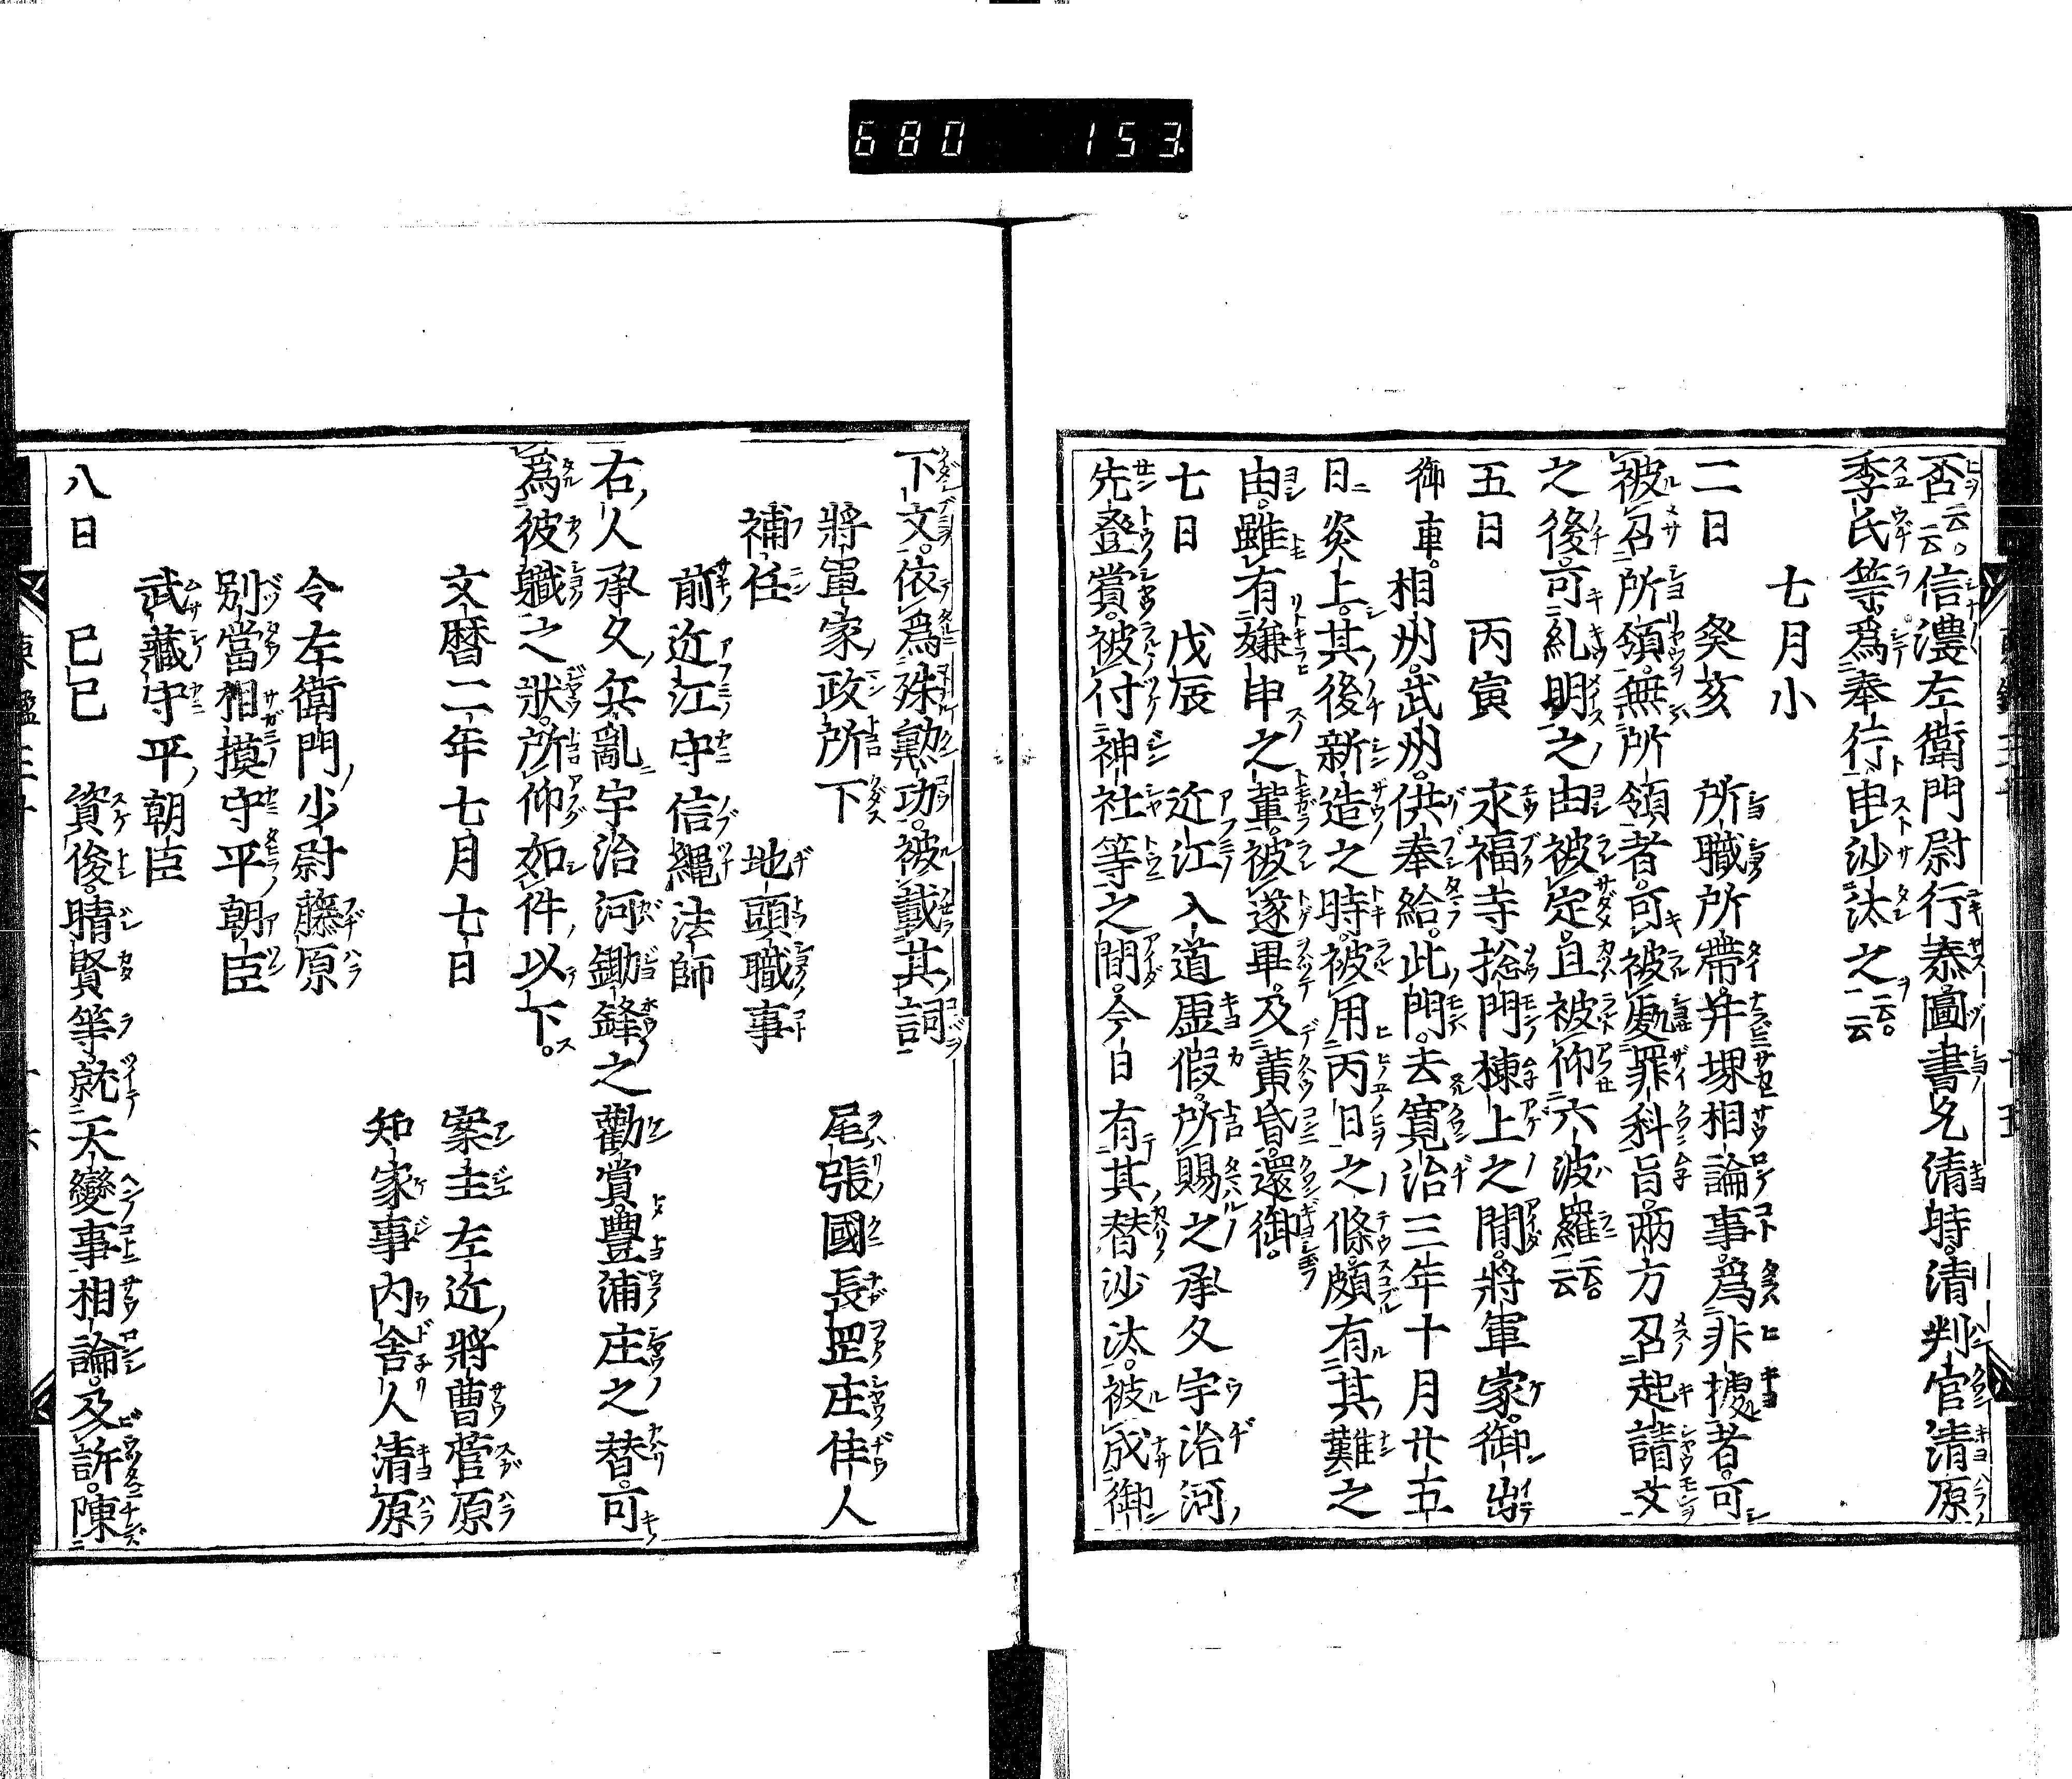 680 153
否云云。信濃左衛門尉行泰。圖書允清時。清判官清原
季氏等。爲奉行申沙汰之云云。
七月小
二日 癸亥 所職所帶。并堺相論事。爲非據者。可
被召所領。無所領者。可被處罪科旨。兩方召起請文
之後。可糺明之由被定。且被仰六波羅云云
五日 丙寅 永福寺捴門棟上之間。將軍家。御出
御車。相州。武州。供奉給。此門。去寛治三年十月廿五
日炎上。其後新造之時。被用丙日之條。頗有其難之
由。雖有嫌申之輩。被遂畢。及黄昏。還御。
七日 戊辰 近江入道虚假。所賜之承久宇治河
先登賞。被付神社等之間。今日有其替沙汰。被成御
下文。依爲殊勲功。被載其詞
將軍家政所下 尾張國長岡庄住人
補任 地頭職事
前近江守信綱法師
右人承久兵亂宇治河鋤鋒之勸賞。豊浦庄之替。可
爲彼職之狀。所仰如件以下。
文暦二年七月七日 案主左近將曹菅原
知家事内舎人清原
令左衛門少尉藤原
別當相摸守平朝臣
武藏守平朝臣
八日 己巳 資俊。晴賢等。就天變事相論。及訴。陳